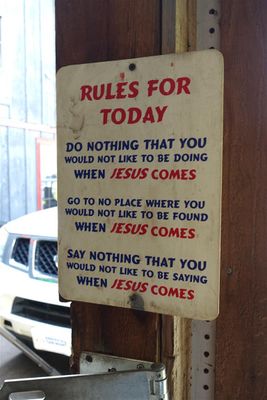 RULES FOR
TODAY
DO NOTHING THAT YOU
WOULD NOT LIKE TO BE DOING
WHEN JESUS COMES
GO TO NO PLACE WHERE YOU
WOULD NOT LIKE TO BE FOUND
WHEN JESUS COMES
SAY NOTHING THAT YOU
WOULD NOT LIKE TO BE SAYING
WHEN JESUS COMES